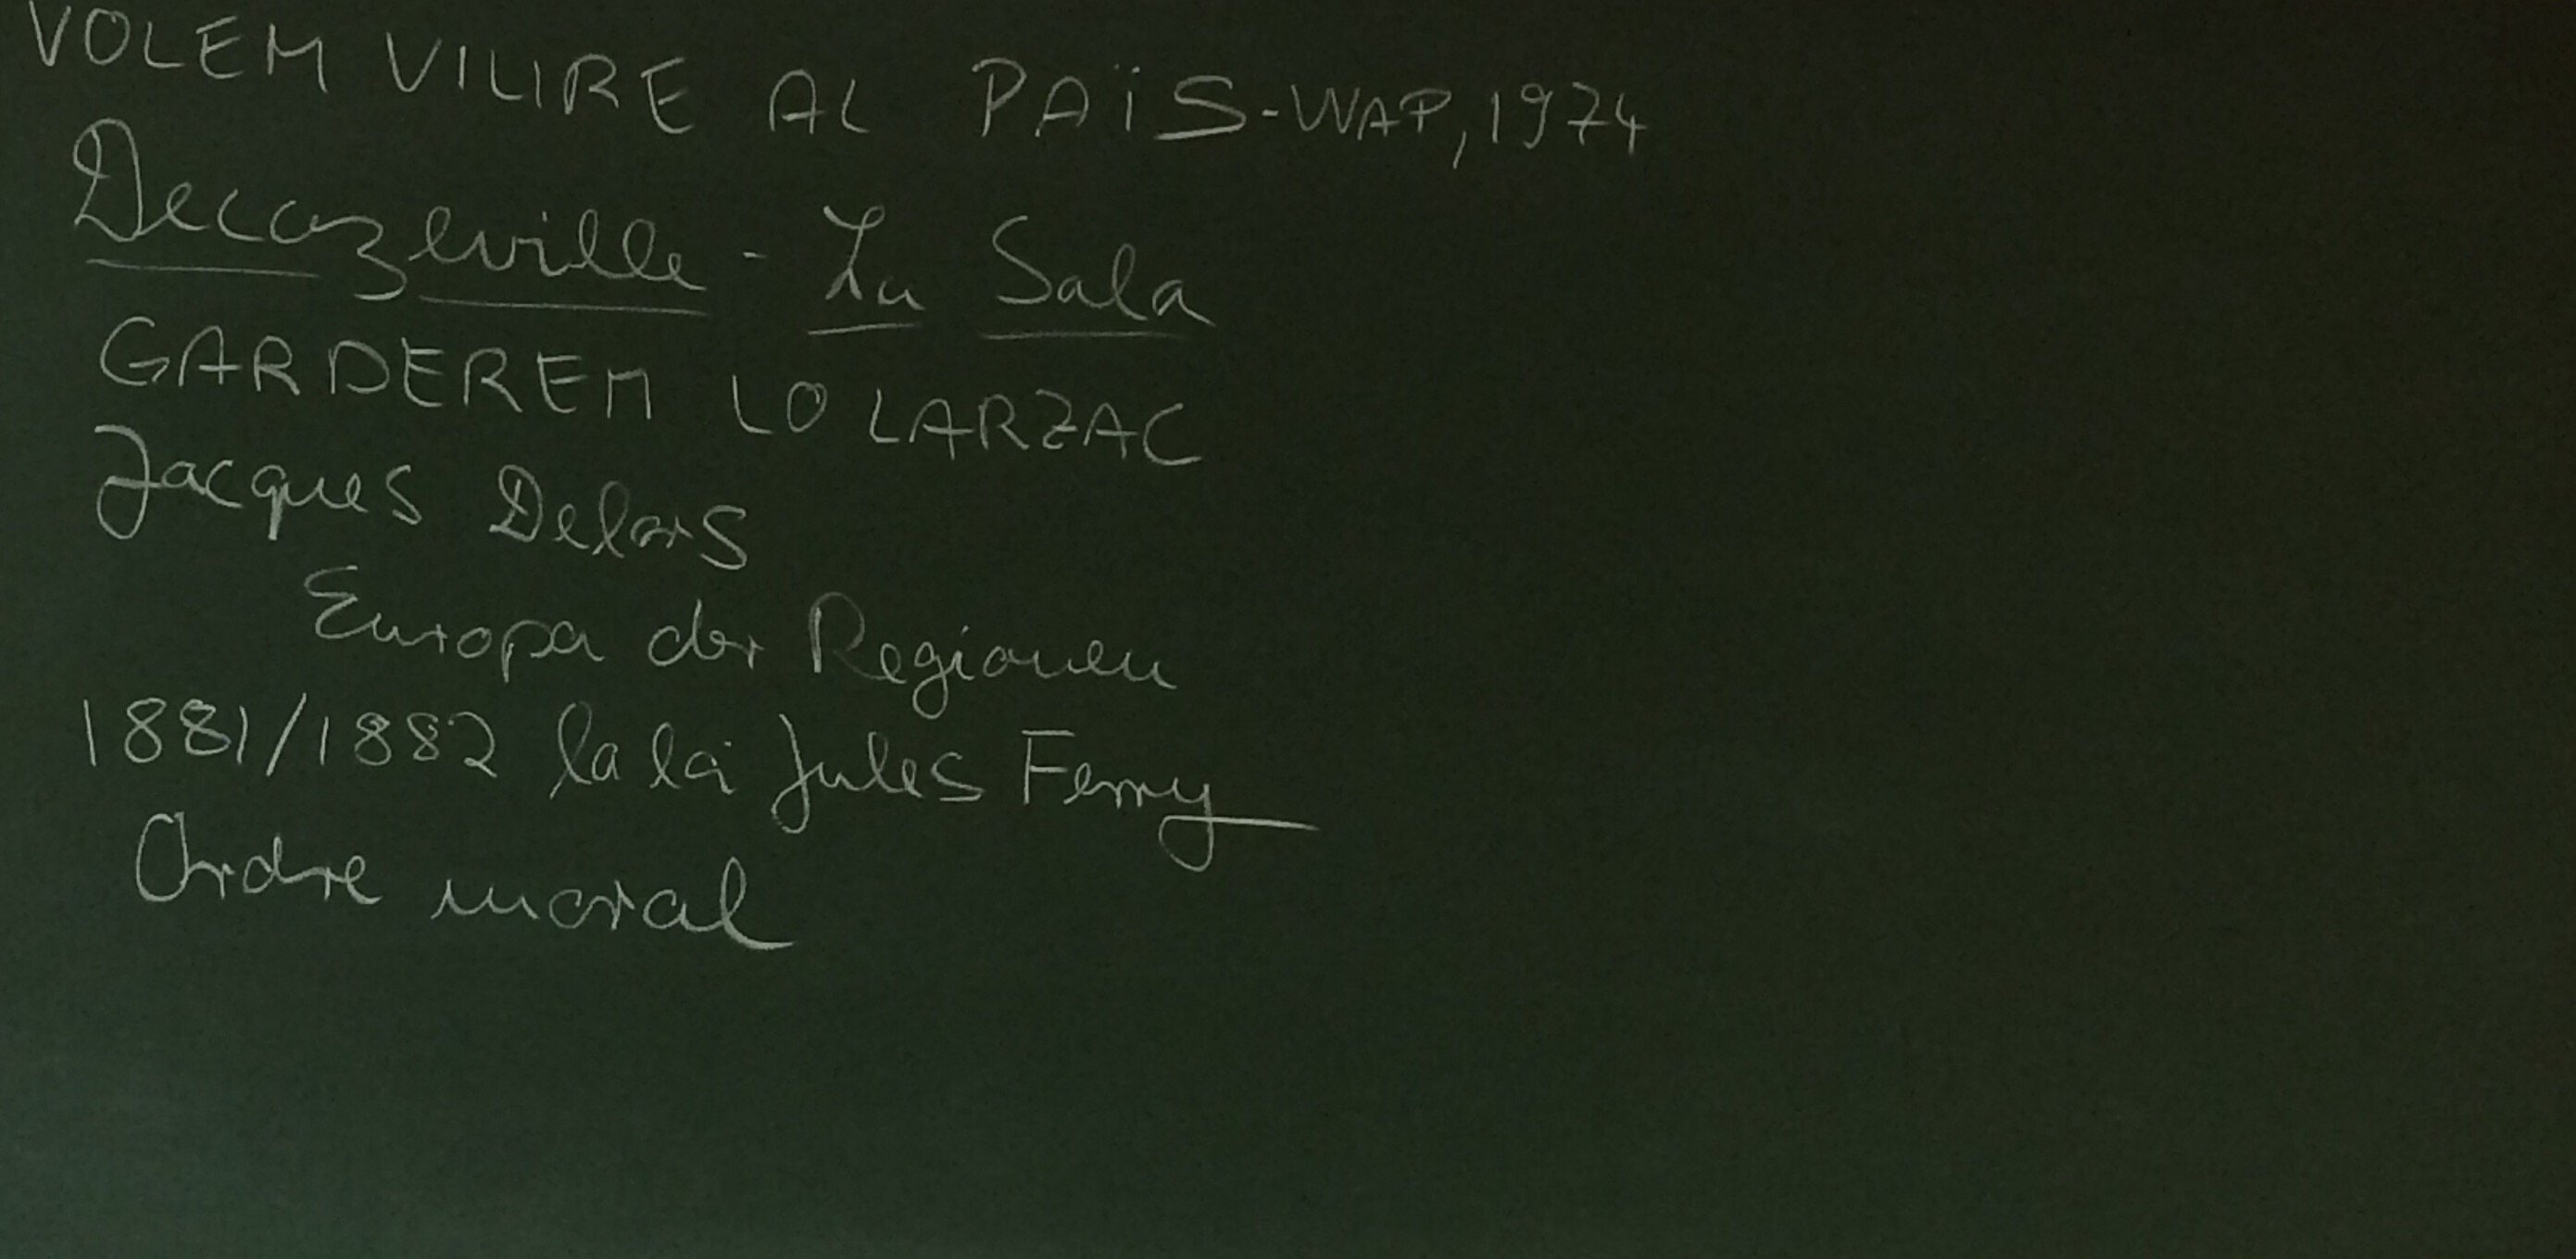 VOLEM VIURE AL PAÏS-VVAP, 1974
Decazeville - La Sala
GARDEREM LO LARZAC
Jacques Delors
Europa der Regionen
1881/1882 la loi Jules Ferry
Ordre moral